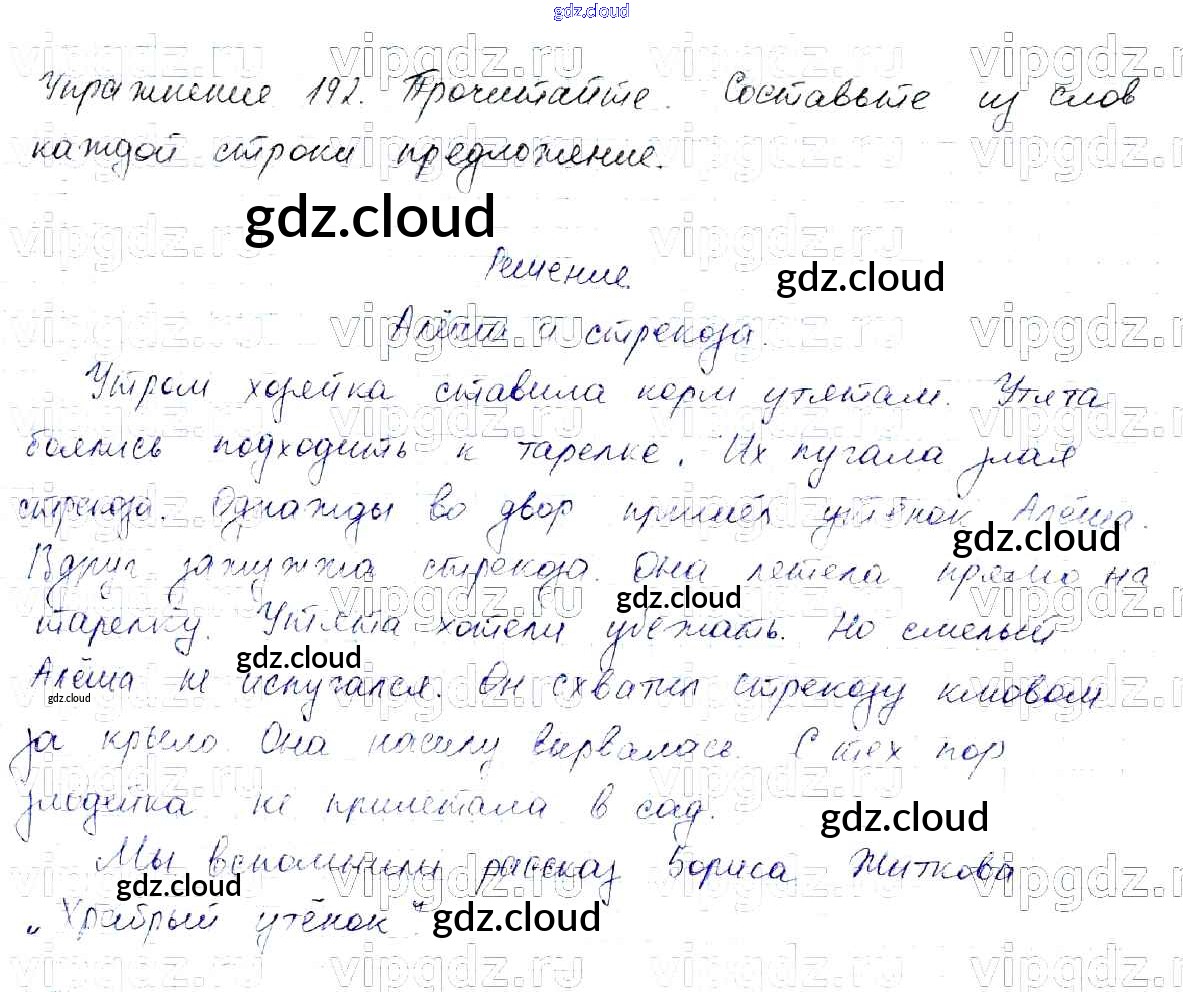 gdz.cloud
Упражнение 192. Прочитайте. Составьте из слов
каждой строки предложение.
gdz.cloud
Решение.
gdz.cloud
Алёша и стрекоза.
Утром хозяйка ставила корм утятам. Утята
боялись подходить к тарелке. Их пугала злая
стрекоза. Однажды во двор пришёл утёнок Алёша.
gdz.cloud
Вдруг зажужжа стрекоза. Она летела прямо на
gdz.cloud
тарелку. Утята хотели убежать. Но смелый
gdz.cloud
Алёша не испугался. Он схватил стрекозу клювом
gdz.cloud
за крыло. Она насилу вырвалась. С тех пор
злодейка не прилетала в сад.
gdz.cloud
Мы вспомнили рассказ Бориса Житкова
gdz.cloud
„Храбрый утёнок“
gdz.cloud